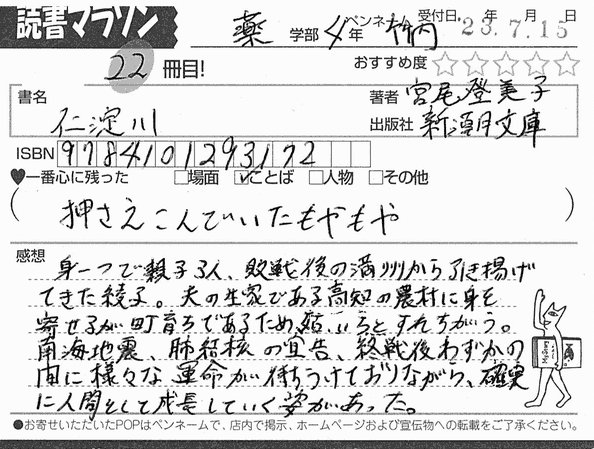 読書マラソン
薬 学部 4 年 ペンネーム 柿内 受付日. 年 月 日 23.7.15
22 冊目! おすすめ度 ☆☆☆☆☆
書名 仁淀川
著者 宮尾登美子
出版社 新潮文庫
ISBN 9784101293172
♥一番心に残った □場面 ☑ことば □人物 □その他
(押さえこんでいたもやもや)
感想
身一つで親子3人、敗戦後の満州から引き揚げ
てきた綾子。夫の生家である高知の農村に身を
寄せるが町育ちであるため姑・いちとすれちがう。
南海地震、肺結核の宣告、終戦後わずかの
間に様々な運命が待ちうけておりながら、確実
に人間として成長していく姿があった。
●お寄せいただいたPOPはペンネームで、店内で掲示、ホームページおよび宣伝物への転載をご了承ください。